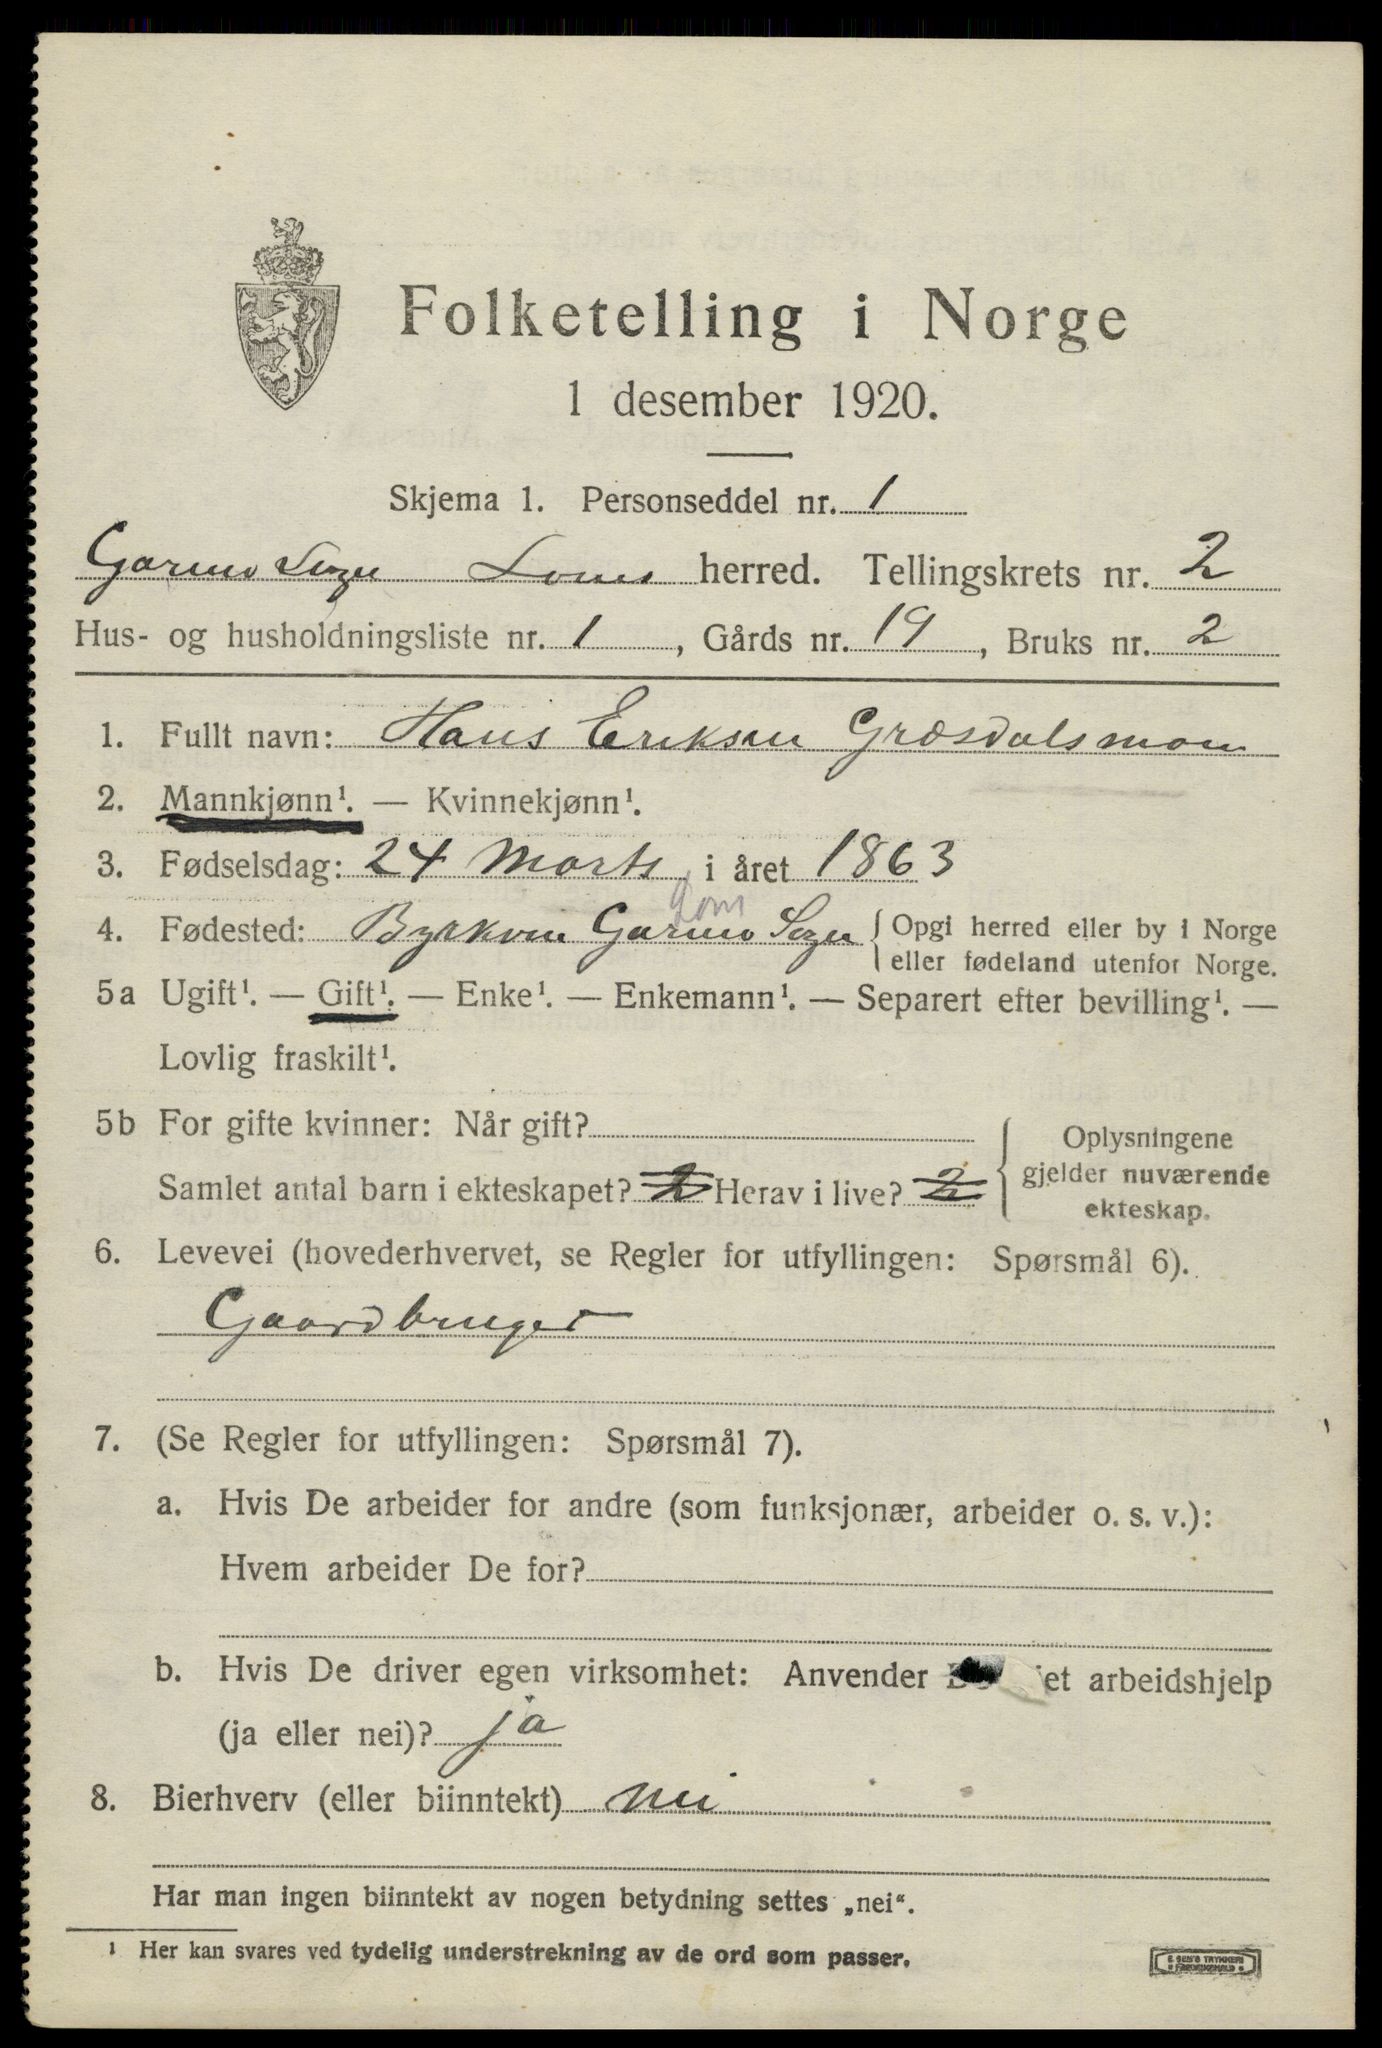 Folketelling i Norge
1 desember 1920.
Skjema 1. Personseddel nr. 1
Garmo Sogn Loms herred. Tellingskrets nr. 2
Hus- og husholdningsliste nr. 1, Gårds nr. 19, Bruks nr. 2
1. Fullt navn: Hans Eriksen Græsdalsmoen
2. Mannkjønn¹. — Kvinnekjønn¹.
3. Fødselsdag: 24 Marts i året 1863
Lom
4. Fødested: Garmo Sogn { Opgi herred eller by i Norge
eller fødeland utenfor Norge.
5a Ugift¹. — Gift¹. — Enke¹. — Enkemann¹. — Separert efter bevilling¹. —
Lovlig fraskilt¹.
5b For gifte kvinner: Når gift?
Samlet antal barn i ekteskapet? 2 Herav i live? 2
Oplysningene
gjelder nuværende
ekteskap.
6. Levevei (hovederhvervet, se Regler for utfyllingen: Spørsmål 6).
Gaardbruger
7. (Se Regler for utfyllingen: Spørsmål 7).
a. Hvis De arbeider for andre (som funksjonær, arbeider o. s. v.):
Hvem arbeider De for?
b. Hvis De driver egen virksomhet: Anvender De et arbeidshjelp
(ja eller nei)? ja
8. Bierhverv (eller biinntekt) nei
Har man ingen biinntekt av nogen betydning settes „nei“.
¹ Her kan svares ved tydelig understrekning av de ord som passer.